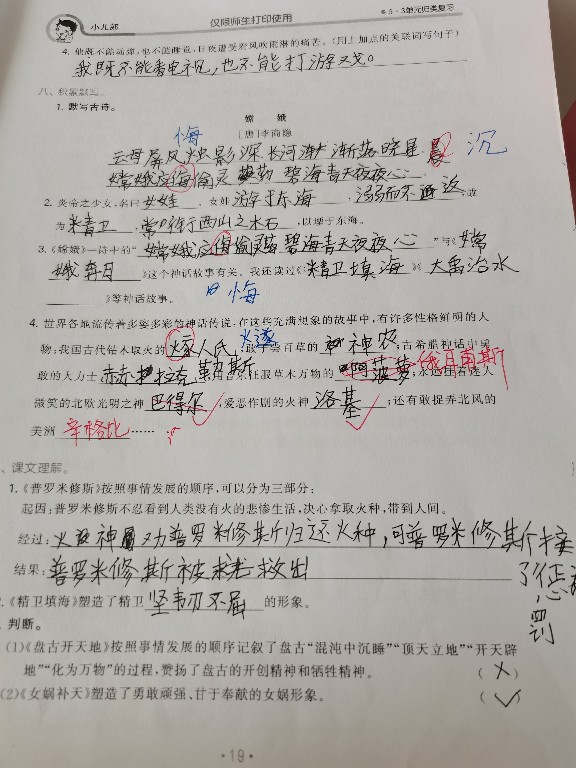 小儿郎 仅限师生打印使用 5·3单元归类复习
4. 他既不能动弹,也不能睡觉,日夜遭受着风吹雨淋的痛苦。(用加点的关联词写句子)
我既不能看电视,也不能打游戏。
八、积累默写。
1. 默写古诗。
嫦娥
[唐]李商隐
悔
云母屏风烛影深 长河渐落 晓星 沉
嫦娥应悔偷灵 碧海青天夜夜心
2. 炎帝之少女,名曰女娃。女娃游于东海,溺而不返,故
为精卫,常衔西山之木石,以堙于东海。
3.《嫦娥》一诗中的“嫦娥应悔偷灵 碧海青天夜夜心”与《嫦
娥奔月》这个神话故事有关。我还读过《精卫填海》《大禹治水
》等神话故事。
悔
4. 世界各地流传着多姿多彩的神话传说,在这些充满想象的故事中,有许多性格鲜明的人
物:我国古代钻木取火的 人民 燧 ;敢于尝百草的神农;古希腊神话中勇
敢的大力士赫拉克勒斯; 征服草木万物的 俄耳甫斯 ;永远 迷人
微笑的北欧光明之神巴得尔,爱恶作剧的火神洛基;还有敢捉弄北风的
美洲辛格比……
、课文理解。
1.《普罗米修斯》按照事情发展的顺序,可以分为三部分:
起因:普罗米修斯不忍看到人类没有火的悲惨生活,决心拿取火种,带到人间。
经过:火 神劝普罗米修斯归还火种,可普罗米修斯接
了惩罚
结果:普罗米修斯被救出
2.《精卫填海》塑造了精卫坚韧不屈的形象。
判断。
(1)《盘古开天地》按照事情发展的顺序记叙了盘古“混沌中沉睡”“顶天立地”“开天辟
地”“化为万物”的过程,赞扬了盘古的开创精神和牺牲精神。 (×)
(2)《女娲补天》塑造了勇敢顽强、甘于奉献的女娲形象。 (✓)
·19·